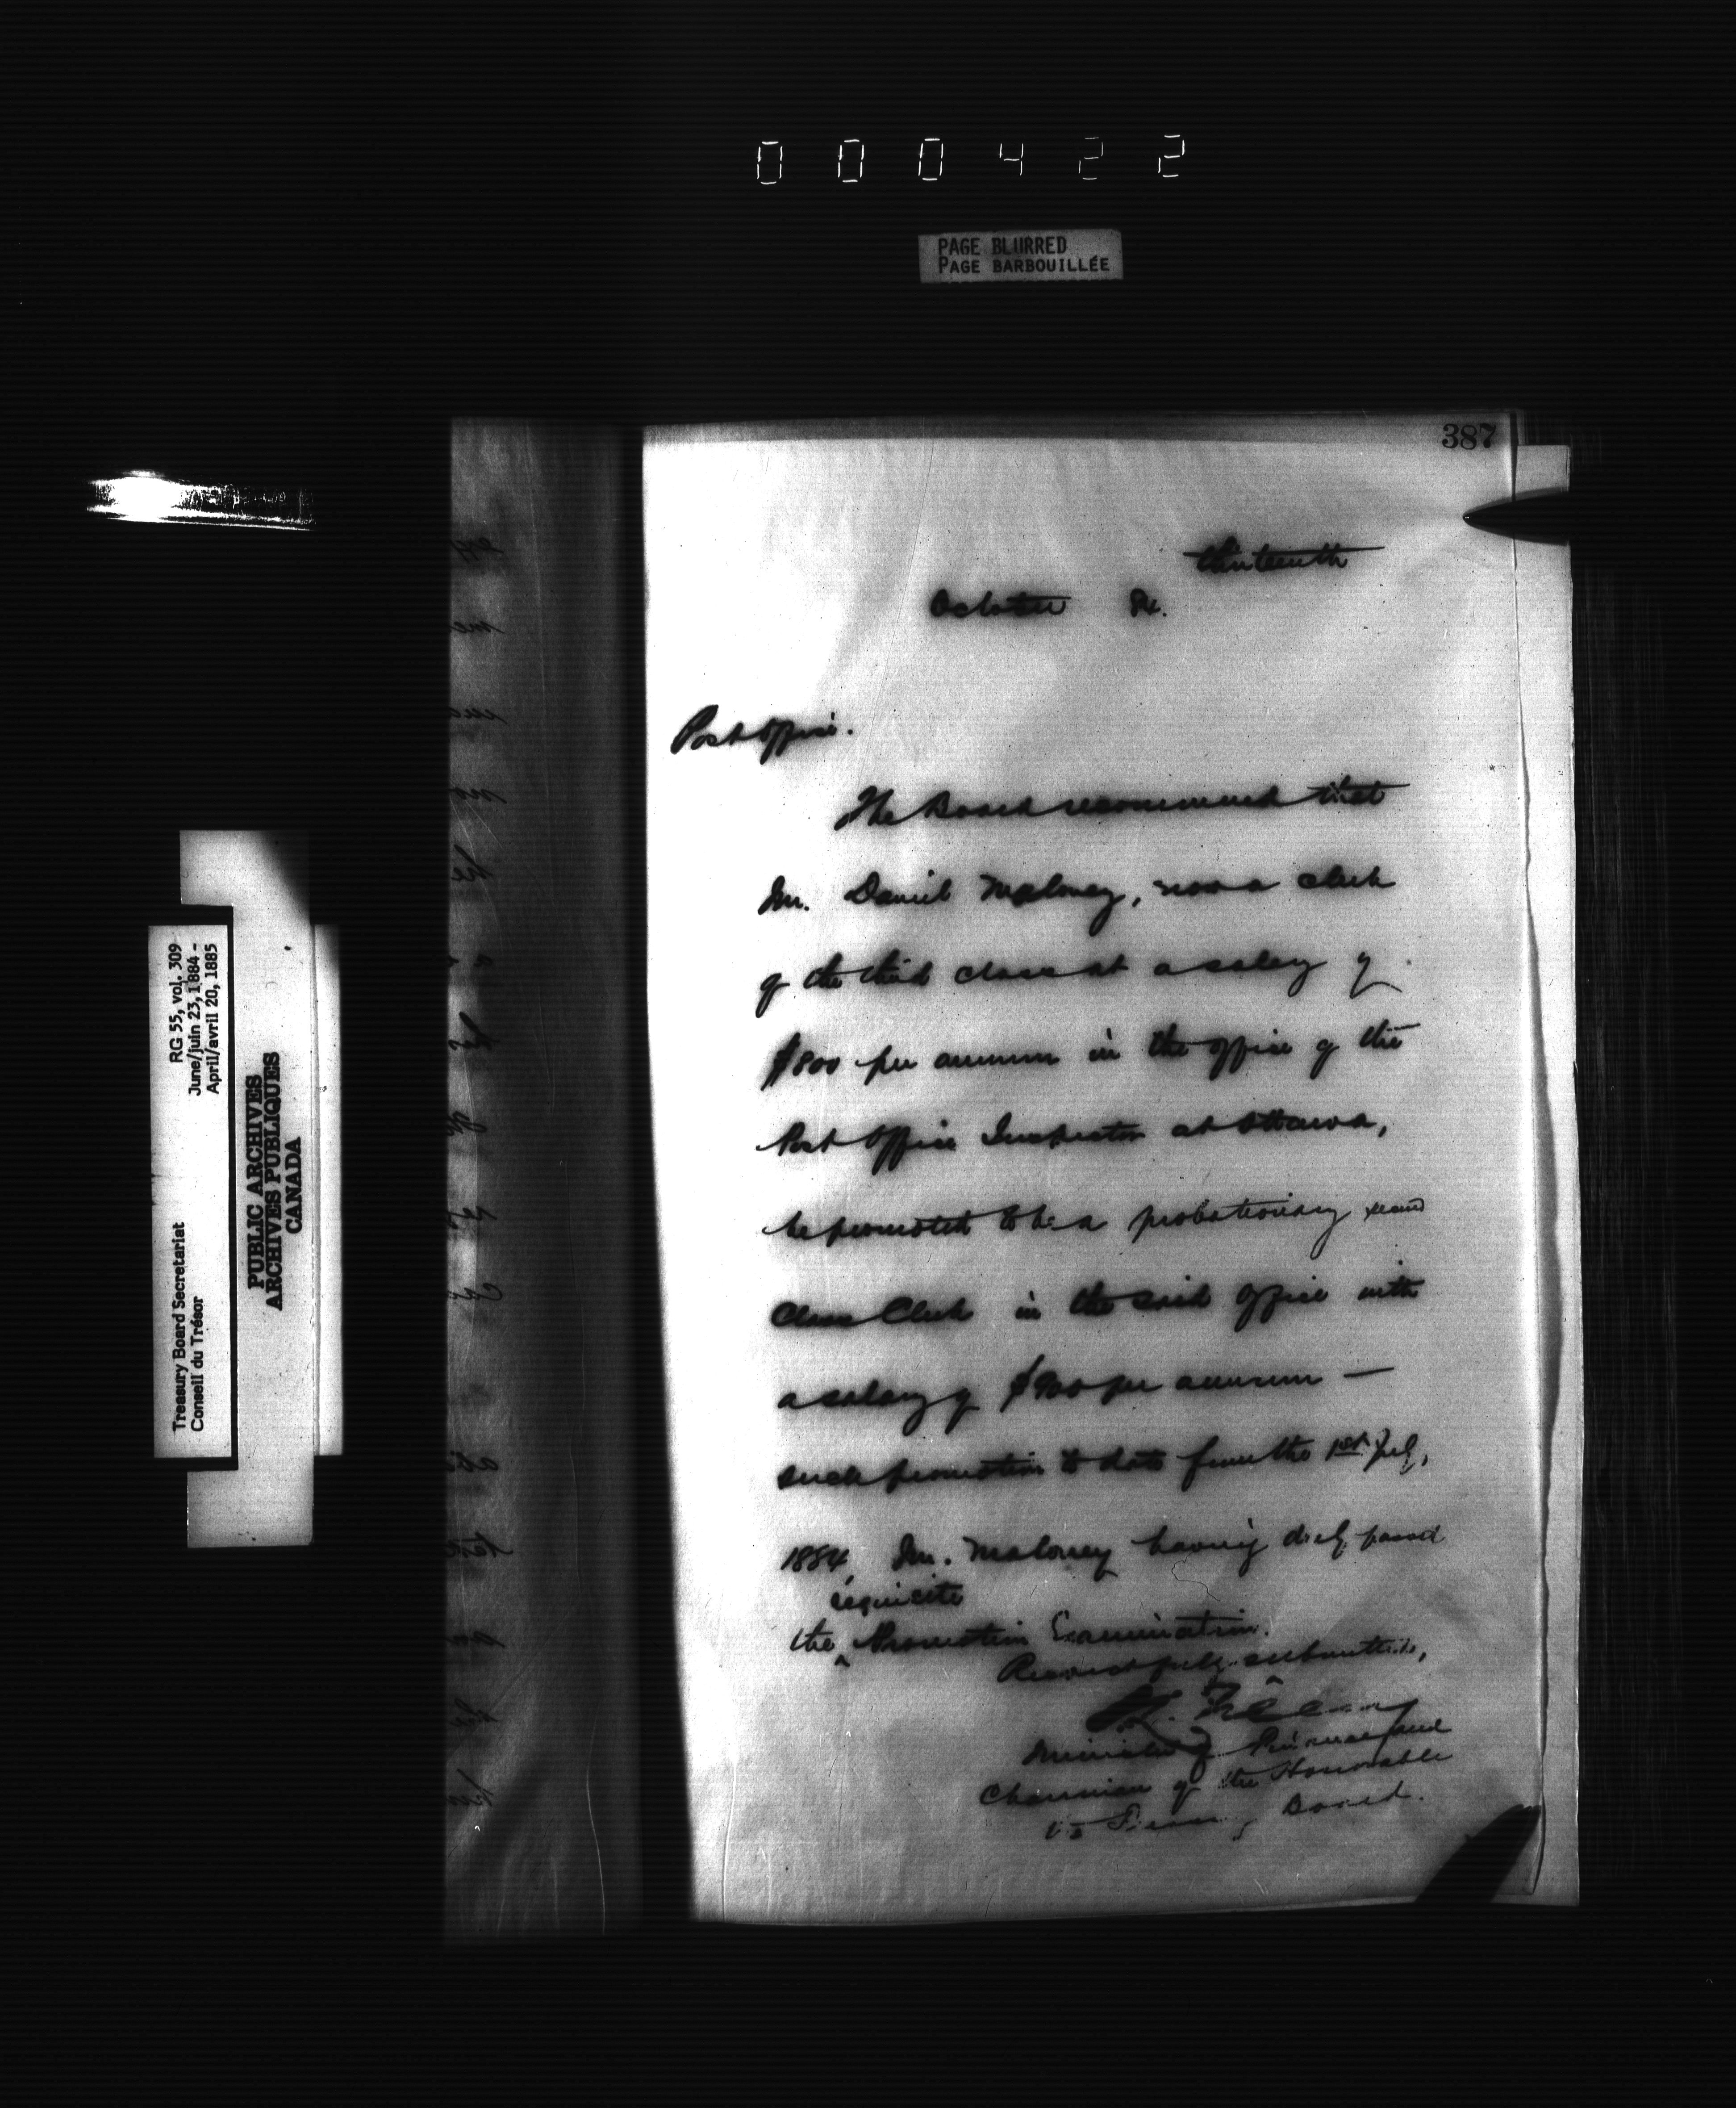 000422
PAGE BLURRED
PAGE BARBOUILLÉE
387
thirteenth
October 84.
Post Office.
The Board recommend that
Mr. Daniel Maloney, now a clerk
of the third class at a salary of
$800 per annum in the office of the
Post Office Inspector at Ottawa,
be promoted to be a probationary second
Class Clerk in the said office with
a salary of $900 per annum —
such promotion to date from the 1st July,
1884, Mr. Maloney having duly passed
requisite
the ^ Promotion Examination.
Respectfully submitted,
Minister of Finance and
Chairman of the Honorable
the Board.
Treasury Board Secretariat
Conseil du Trésor
RG 55, vol. 309
June/juin 23, 1884 -
April/avril 20, 1885
PUBLIC ARCHIVES
ARCHIVES PUBLIQUES
CANADA